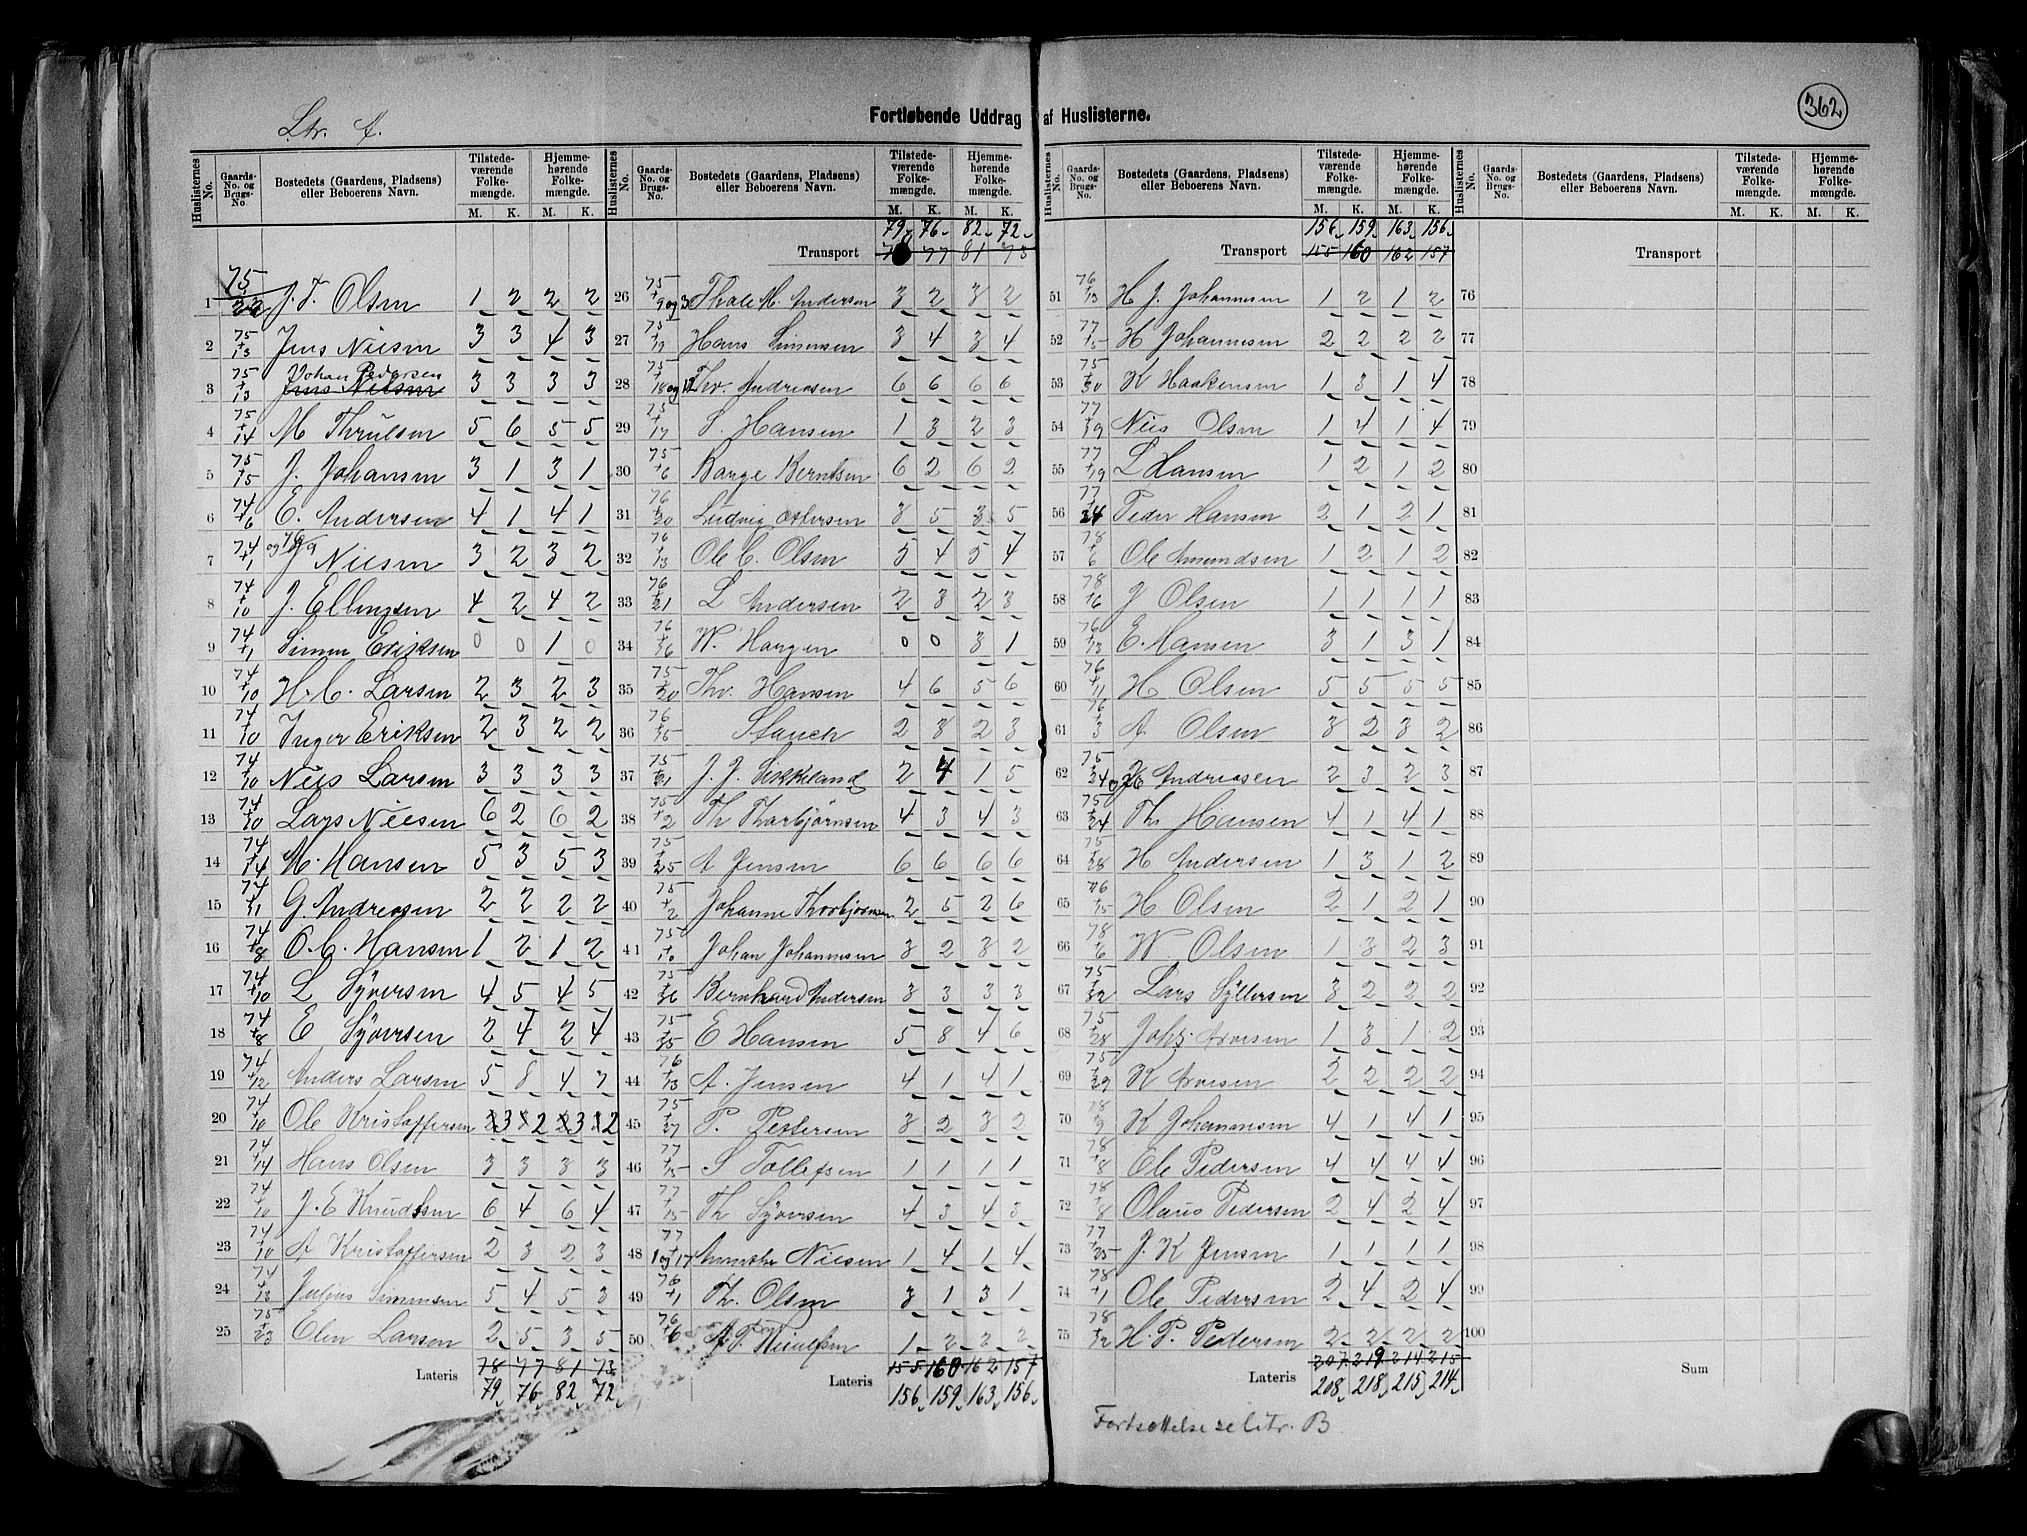 Ltr. A.
Fortløbende Uddrag af Huslisterne.
362
Huslisternes No. Gaards-No. og Brugs-No. Bostedets (Gaardens, Pladsens) eller Beboerens Navn. Tilstedeværende Folkemængde. M. K. Hjemmehørende Folkemængde. M. K.
1 75/22 J. T. Olsen 1 2 2 2
2 75/13 Jens Nilsen 3 3 4 3
3 75/13 Johan Pedersen 3 3 3 3
4 75/14 M Thrulsen 5 6 5 5
5 75/15 J. Johansen 3 1 3 1
6 74/6 E. Andersen 4 1 4 1
7 74/1 Nilsen 3 2 3 2
8 74/10 J. Ellingsen 4 2 4 2
9 74/1 Simen Eriksen 0 0 1 0
10 74/10 H. C. Larsen 2 3 2 3
11 74/10 Inger Eriksen 2 3 2 2
12 74/10 Nils Larsen 3 3 3 3
13 74/10 Lars Nilsen 6 2 6 2
14 74/14 M. Hansen 5 3 5 3
15 74/11 G. Andreasen 2 2 2 2
16 74/8 O. C. Hansen 1 2 1 2
17 74/10 L Syversen 4 5 4 5
18 74/8 E Syversen 2 4 2 4
19 74/12 Anders Larsen 5 8 4 7
20 74/10 Ole Kristoffersen 3 2 3 2
21 74/14 Hans Olsen 3 3 3 3
22 74/10 J. E Knudsen 6 4 6 4
23 74/10 A Kristoffersen 2 3 2 3
24 74/13 Julius Simensen 5 4 5 3
25 75/23 Olen Larsen 2 5 3 5
Lateris 78 77 81 73
79 76 82 72
Transport 79 76 82 72
77 81 73
26 75/9 og 3 Thale M. Andersen 3 2 3 2
27 75/19 Hans Simensen 3 4 3 4
28 75/18 og 12 Thv. Andreasen 6 6 6 6
29 75/17 S. Hansen 1 3 2 3
30 75/6 Borge Berntsen 6 2 6 2
31 76/20 Ludvig Pettersen 3 5 3 5
32 76/13 Ole C. Olsen 5 4 5 4
33 76/21 L Andersen 2 3 2 3
34 76/16 W. Hargen 0 0 3 1
35 75/20 Thv. Hansen 4 6 5 6
36 76/15 Stauch 2 3 2 3
37 75/21 J. J. Sikkeland 2 4 1 5
38 75/2 Th Thorbjörnsen 4 3 4 3
39 75/25 A Jensen 6 6 6 6
40 75/2 Johanne Thorbjørnsen 2 5 2 6
41 75/10 Johan Johannesen 3 2 3 2
42 75/26 Bernhard Andersen 3 3 3 3
43 75/25 E Hansen 5 8 4 6
44 76/13 A. Jensen 4 1 4 1
45 75/27 P. Pettersen 3 2 3 2
46 77/15 S Tollefsen 1 1 1 1
47 77/15 Th Syversen 4 3 4 3
48 77/1 og 17 Nilsen 1 4 1 4
49 76/1 Th. Olsen 3 1 3 1
50 76/6 1 2 2 2
Lateris 155 160 162 157
156 159 163 156
Transport 156 159 163 156
155 160 162 157
51 76/13 H J. Johannesen 1 2 1 2
52 77/5 H Johannesen 2 2 2 2
53 75/30 K Haakensen 1 3 1 4
54 77/19 Nils Olsen 1 4 1 4
55 77/19 L Hansen 1 2 1 2
56 77/24 Peder Hansen 2 1 2 1
57 78/6 Ole Amundsen 1 2 1 2
58 78/6 J Olsen 1 1 1 1
59 76/13 E. Hansen 3 1 3 1
60 76/11 H Olsen 5 5 5 5
61 76/3 A Olsen 3 2 3 2
62 75/24 Andreasen 2 3 2 3
63 75/24 Th. Hansen 4 1 4 1
64 75/28 H Andersen 1 3 1 2
65 76/15 H Olsen 2 1 2 1
66 78/6 W Olsen 1 3 2 3
67 75/32 Lars Syllersen 3 2 2 2
68 75/28 Johs. Arvesen 1 3 1 2
69 75/29 K Arvesen 2 2 2 2
70 78/9 K Johannesen 4 1 4 1
71 78/8 Ole Pedersen 4 4 4 4
72 78/8 Olaus Pedersen 2 4 2 4
73 77/25 J. K Jensen 1 1 1 1
74 78/1 Ole Pedersen 2 4 2 4
75 78/12 H. P. Pedersen 2 2 2 2
Lateris 207 219 214 215
208 218 215 214
Transport
76
77
78
79
80
81
82
83
84
85
86
87
88
89
90
91
92
93
94
95
96
97
98
99
100
Sum
Fortsættelse se Litr. B